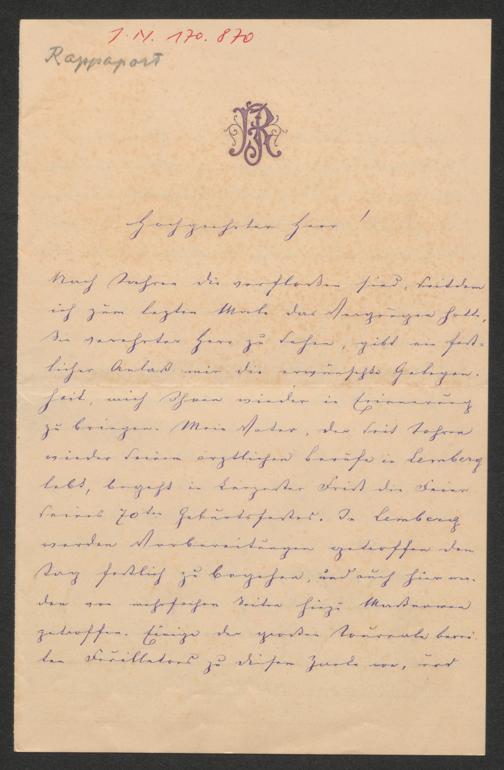 I.N. 170.870
Rappaport
Hochgeehrter Herr!
Nach Jahren die verflossen sind, seitdem
ich zum letzten Male das Vergnügen hatte,
Sie verehrter Herr zu sehen, gibt ein fest-
licher Anlaß mir die erwünschte Gelegen-
heit, mich Ihnen wieder in Erinnerung
zu bringen. Mein Vater, der seit Jahren
wieder seinem ärztlichen Berufe in Lemberg
lebt, begeht in kürzester Frist die Feier
seines 70ten Geburtsfestes. In Lemberg
werden Vorbereitungen getroffen den
Tag festlich zu begehen, und auch hier wer-
den von mehrfachen Seiten hiezu Maßnahmen
getroffen. Einige der großen Journale berei-
ten Feuilletons zu diesem Zwecke vor, und